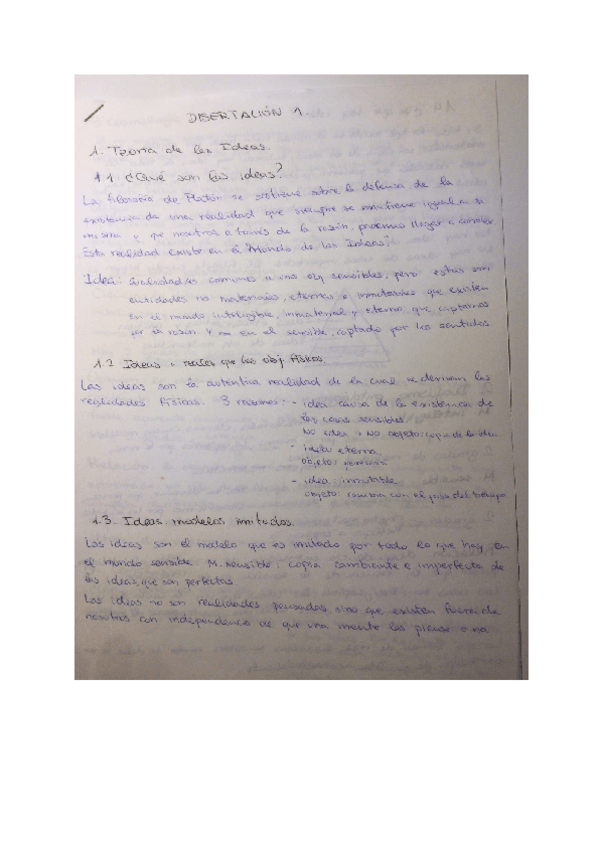 DISERTACIÓN 1
1. Teoría de las Ideas.
1.1 ¿Qué son las ideas?
La filosofía de Platón se sostiene sobre la defensa de la
existencia de una realidad que siempre se mantiene igual a si
misma y que nosotros a través de la razón, podemos llegar a conocer.
Esta realidad existe en el "Mundo de las Ideas".
Idea: cualidades comunes a una obj sensibles, pero estas son
entidades no materiales, eternas e inmutables que existen
en el mundo inteligible, inmaterial y eterno que captamos
por la razón y no en el sensible, captado por los sentidos
1.2 Ideas + reales que los obj. físicos.
Las ideas son la auténtica realidad de la cual se derivan las
realidades físicas. 3 razones: - idea causa de la existencia de
las cosas sensibles.
No idea → No objeto: copia de la idea
- idea: eterna
objeto:
- idea: inmutable
objeto: cambia con el paso del tiempo
1.3. Ideas, modelos imitados.
Las ideas son el modelo que es imitado por todo lo que hay en
el mundo sensible. M. sensible: copia cambiante e imperfecta de
las ideas, que son perfectas
Las ideas no son realidades pensadas sino que existen fuera de
nosotros con independencia de que una mente las piense o no.